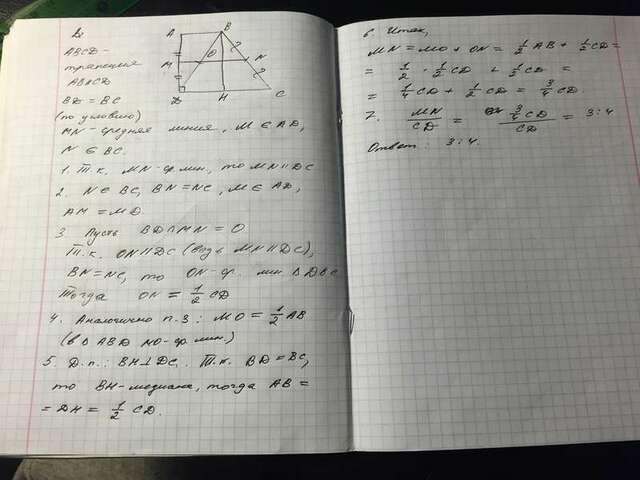 A
B
ABCD-
трапеция
AB∥CD
M
O
?
N
?
BD = BC
D
H
C
(по условию)
MN - средняя линия, M ∈ AD,
N ∈ BC.
1. Т.к. MN - ср. лин, то MN ∥ DC
2. N ∈ BC, BN = NC, M ∈ AD,
AM = MD
3. Пусть BD ∩ MN = O
Т.к. ON ∥ DC (ведь MN ∥ DC),
BN = NC, то ON - ср. лин Δ DBC
Тогда ON = 1/2 CD
4. Аналогично п. 3: MO = 1/2 AB
(в Δ ABD MO - ср. лин.)
5. Д.п.: BH ⊥ DC. Т.к. BD = BC,
то BH - медиана, тогда AB =
= DH = 1/2 CD.
6. Итак,
MN = MO + ON = 1/2 AB + 1/2 CD =
= 1/2 · 1/2 CD + 1/2 CD =
= 1/4 CD + 1/2 CD = 3/4 CD.
7. MN/CD = 3/4 CD/CD = 3:4
Ответ: 3:4.